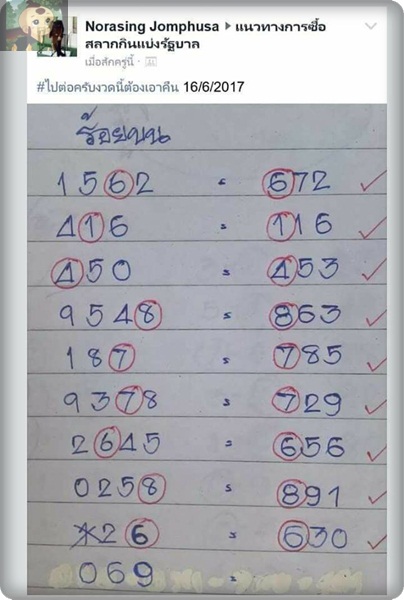 Norasing Jomphusa ▸ แนวทางการซื้อ
สลากกินแบ่งรัฐบาล
เมื่อสักครู่นี้ ·
#ไปต่อครับงวดนี้ต้องเอาคืน 16/6/2017
ร้อยบน
1562 = 672 ✓
416 = 116 ✓
450 = 453 ✓
9548 = 863 ✓
187 = 785 ✓
9378 = 729 ✓
2645 = 656 ✓
0258 = 891 ✓
*26 = 630 ✓
069 =